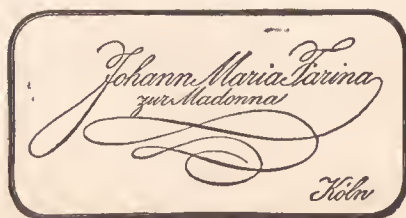 Johann Maria Farina
zur Madonna
Köln